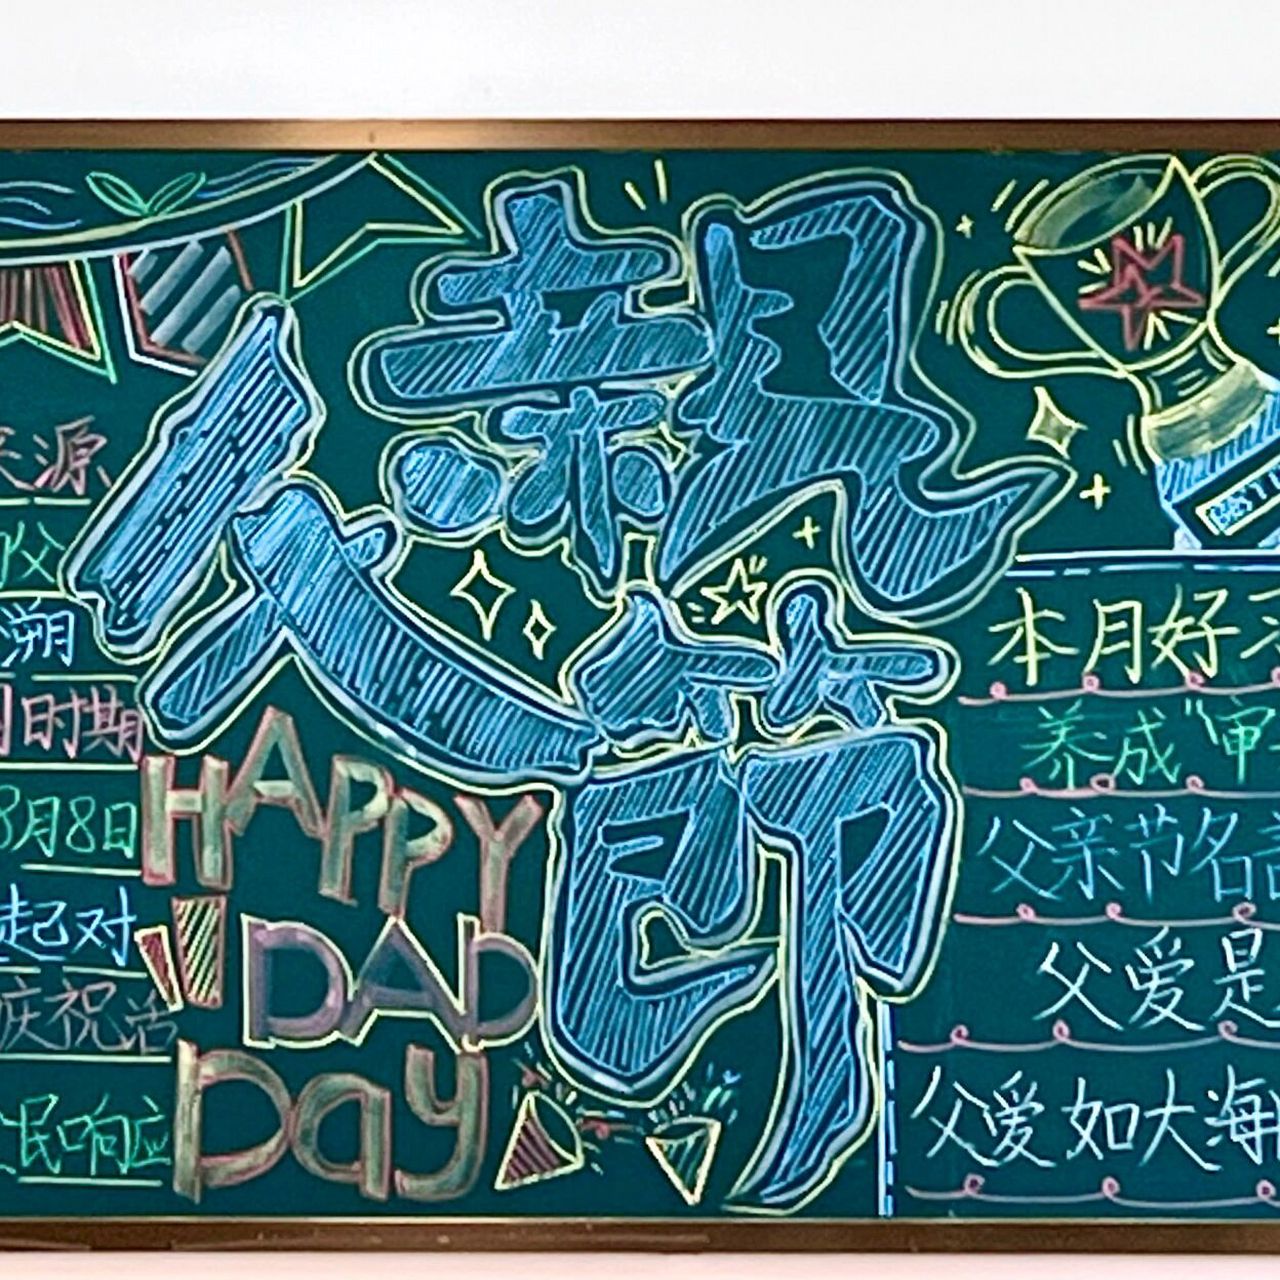 父親節
HAPPY
DAD
Day
来源
父
溯
时期
8月8日
起对
庆祝活
民响应
BEST
本月好
养成“审
父亲节名言
父爱是
父爱如大海